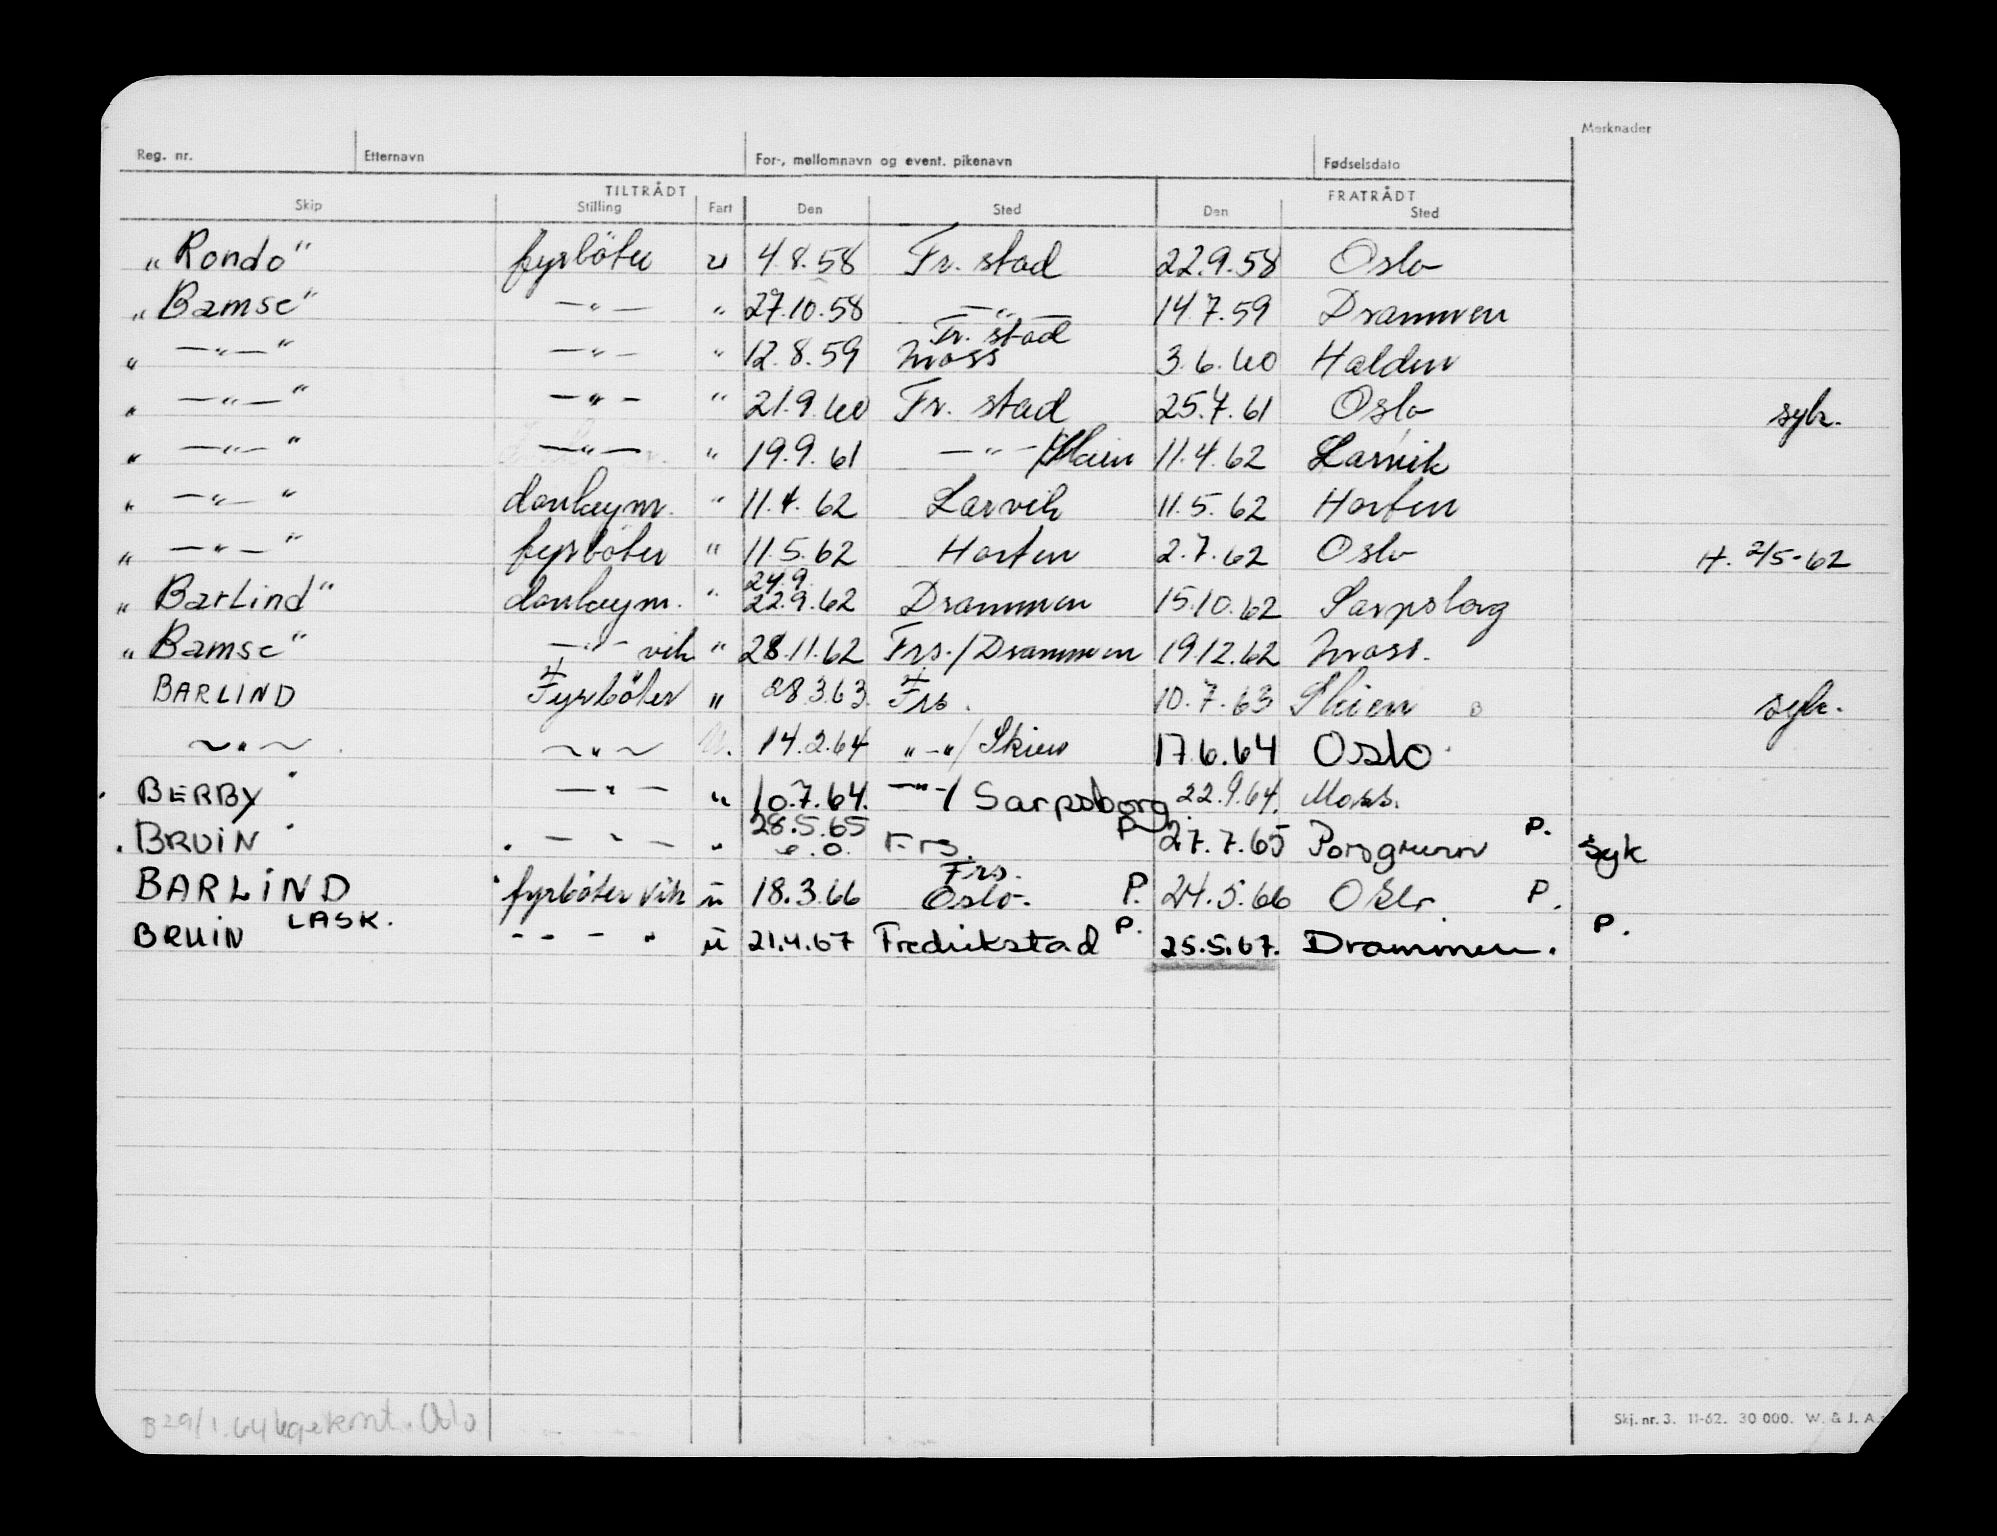 Merknader
Reg. nr. Etternavn For-, mellomnavn og event. pikenavn Fødselsdato
TILTRÅDT FRATRÅDT
Skip Stilling Fart Den Sted Den Sted
"Rondo" fyrböter u 4.8.58 Fr. stad 22.9.58 Oslo
"Bamse" —"— " 27.10.58 —"— 14.7.59 Drammen
Fr. stad
" —"—" —"— " 12.8.59 Moss 3.6.60 Halden
" —"—" —"— " 21.9.60 Fr. stad 25.7.61 Oslo syk.
" —"—" —"— " 19.9.61 —"—/Skien 11.4.62 Larvik
" —"—" donkeym. " 11.4.62 Larvik 11.5.62 Horten
" —"—" fyrböter " 11.5.62 Horten 2.7.62 Oslo H. 2/5-62
24.9.
"Barlind" donkeym. " 22.9.62 Drammen 15.10.62 Sarpsborg
"Bamse" —"— vik " 28.11.62 Frs./Drammen 19.12.62 Moss.
BARLIND Fyrböter " 28.3.63. Frs. 10.7.63 Skien B syk.
~"~ ~"~ U. 14.2.64 "-"/Skien 17.6.64 Oslo.
BERBY —"— " 10.7.64. —"—/Sarpsborg 22.9.64. Moss.
28.5.65 P. P.
BRUIN —"— " Frs. 27.7.65 Porsgrunn syk
Frs.
BARLIND fyrböter vik ü 18.3.66 Oslo. P. 24.5.66 Oslo. P.
LASK. P. P.
BRUIN - - - " ü 21.4.67 Fredrikstad 25.5.67. Drammen.
B 29/1.64 Oslo
Skj. nr. 3. 11-62. 30 000. W. & J. A.